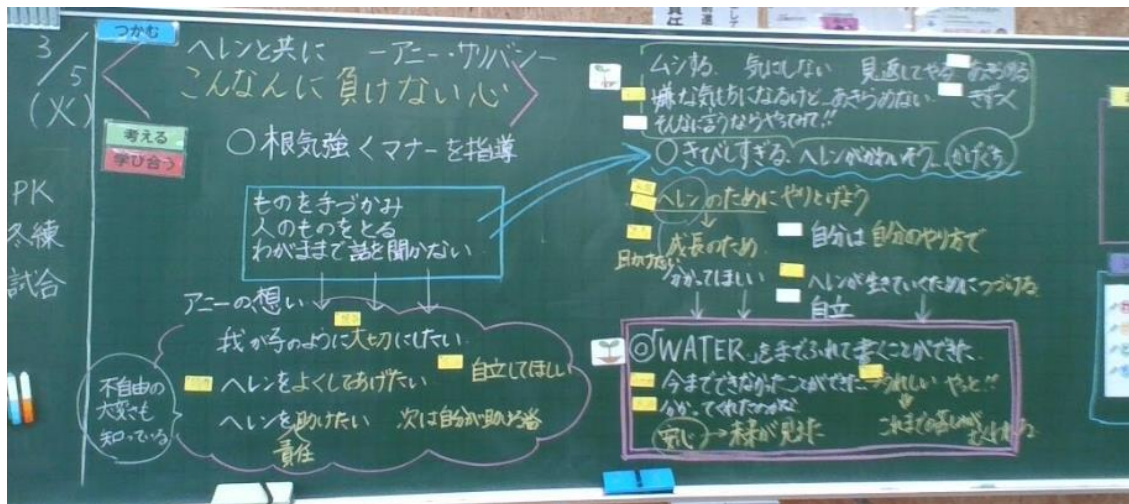 3/5
(火)
PK
冬練
試合
つかむ
ヘレンと共に ーアニー・サリバンー
こんなんに負けない心
考える
学び合う
○根気強くマナーを指導
ものを手づかみ
人のものをとる
わがままで話を聞かない
アニーの想い
我が子のように大切にしたい
ヘレンをよくしてあげたい
自立してほしい
ヘレンを助けたい 次は自分が助ける番
責任
不自由の
大変さも
知っている
ムシする 気にしない 見返してやる あきらめる
嫌な気もちになるけど あきらめない きずつく
そんなに言うならやってみて!!
○きびしすぎる、ヘレンがかわいそう かげぐち
ヘレンのためにやりとげよう
成長のため
自分は自分のやり方で
分かってほしい
ヘレンが生きていくためにつづける
自立
◎「WATER」を手でふれて書くことができた
今までできなかったことができた うれしい やっと!!
分かってくれたのかな
安心→未来が見えた
これまでの
責任